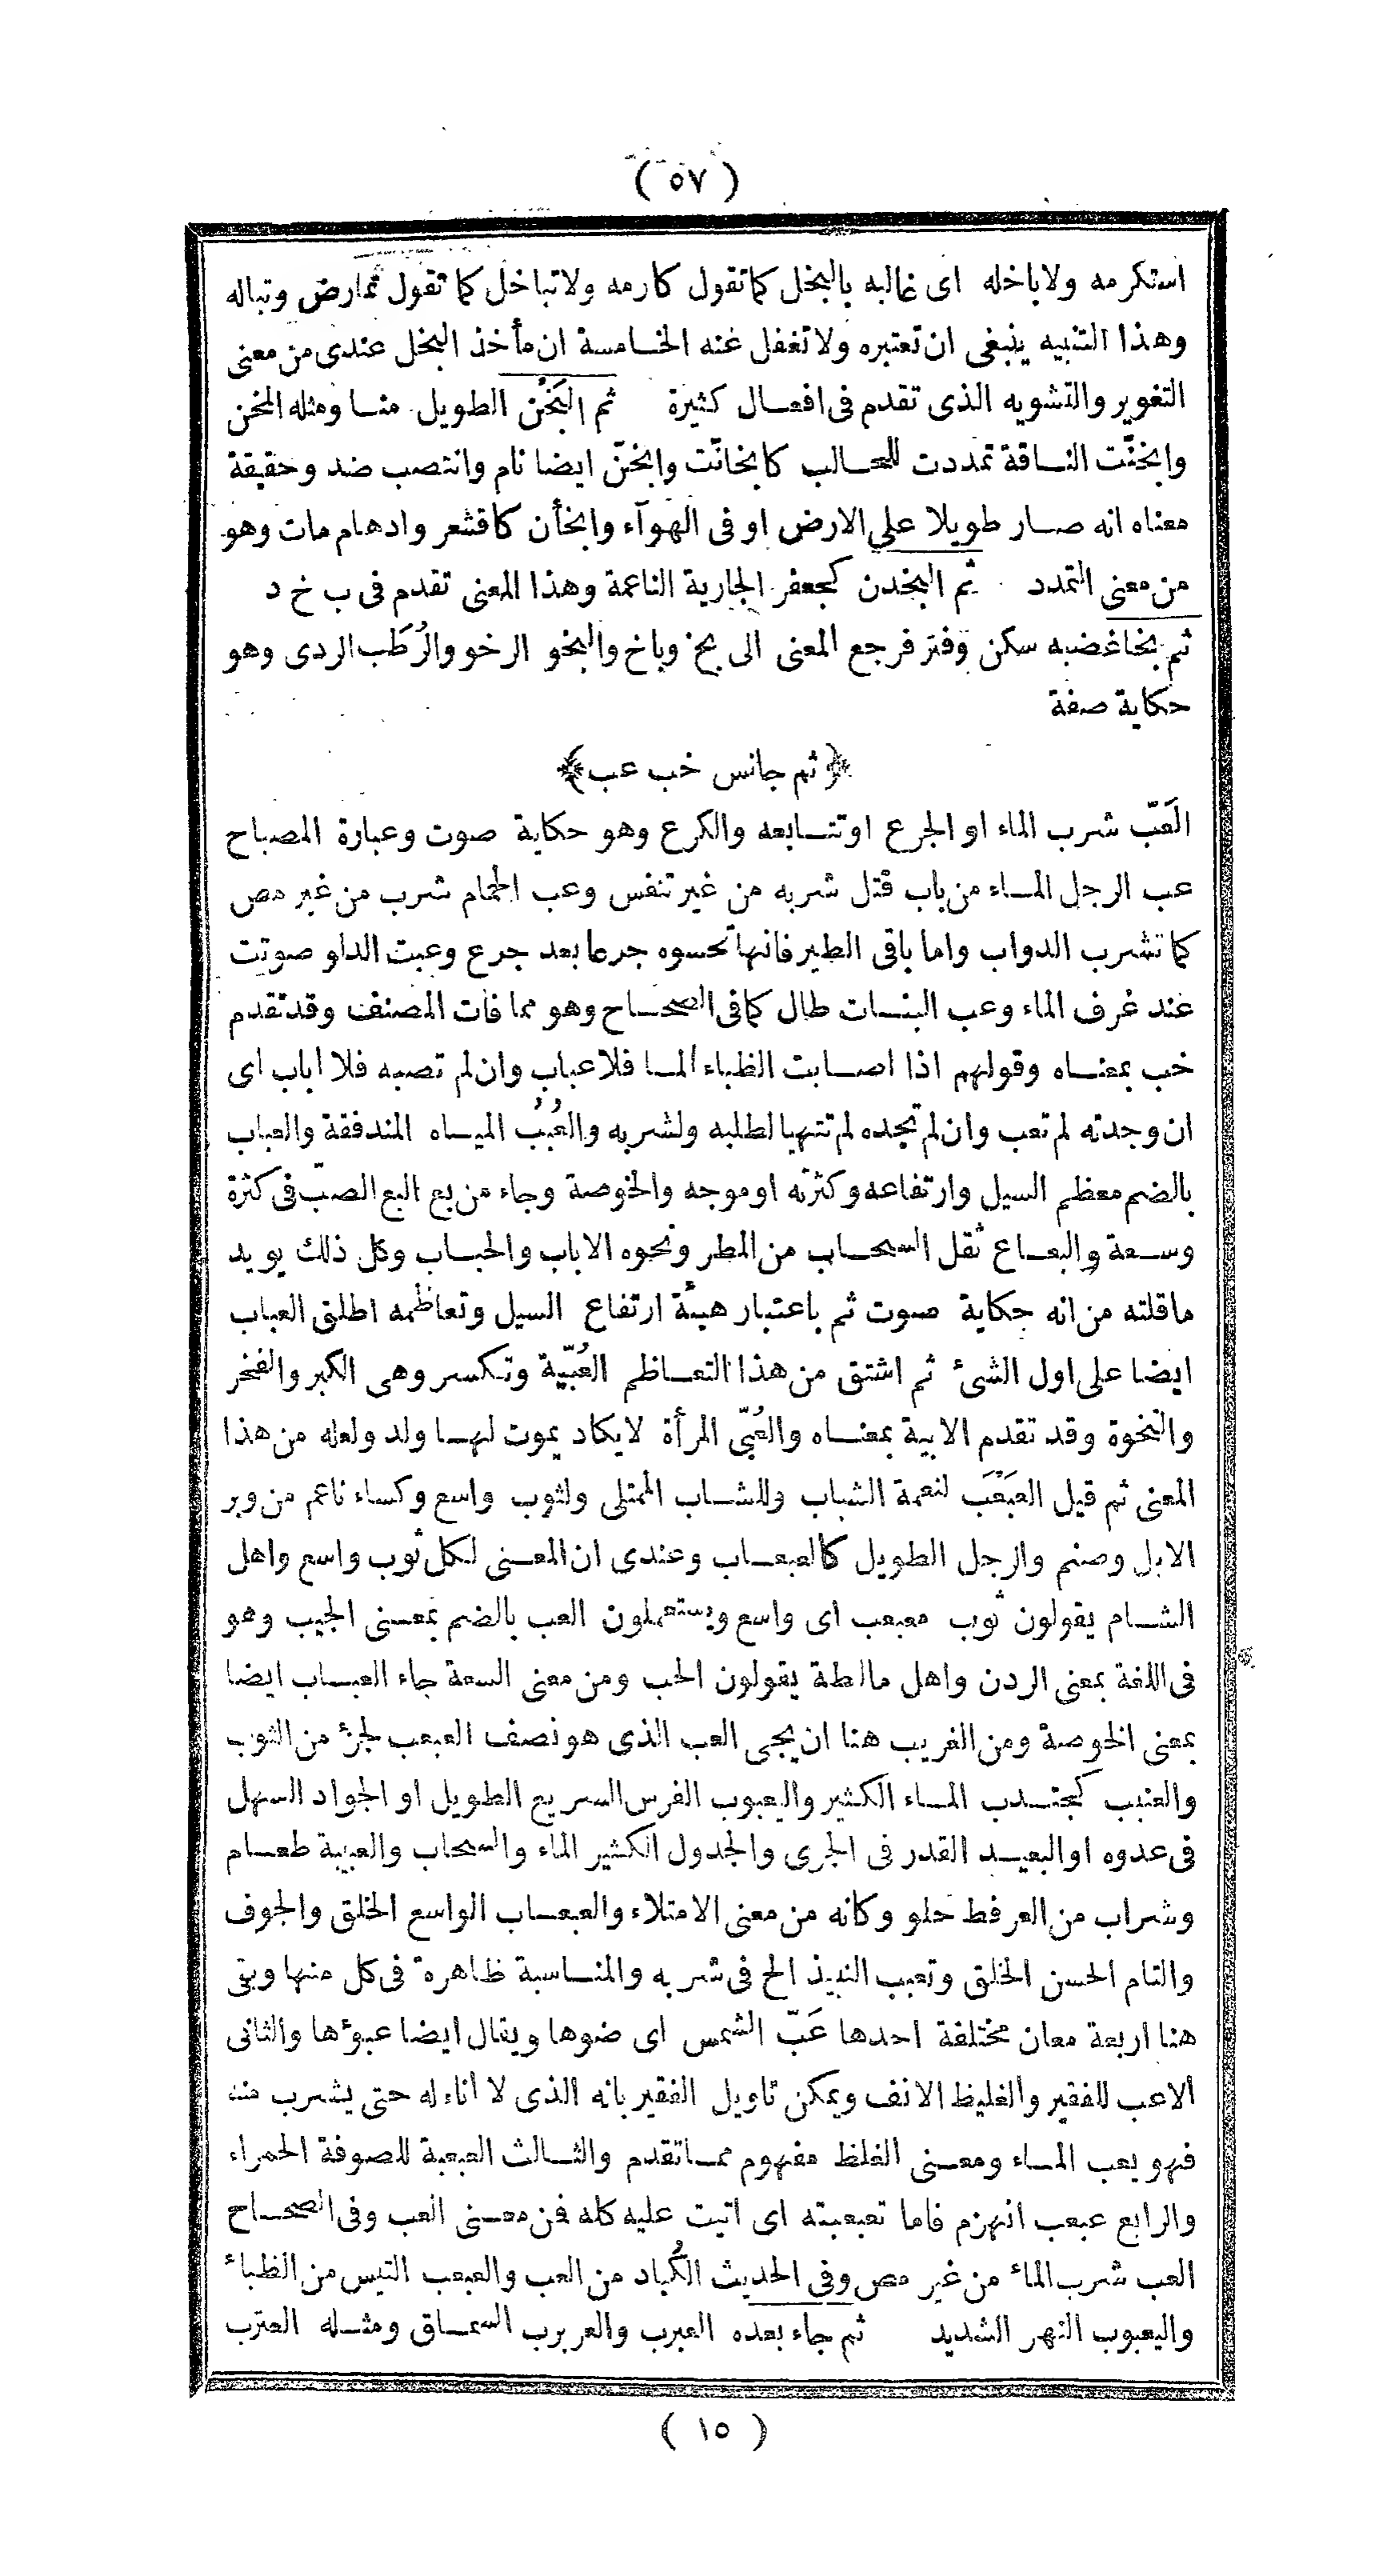 ( ٥٧ )
استكرمه ولاباخله اى غالبه بالبخل كماتقول كارمه ولاتباخل كما تقول تمارض وتباله
وهذا التنبيه ينبغى ان تعتبره ولاتغفل عنه الخامسة ان مأخذ البخل عندى من معنى
التغوير والتشويه الذى تقدم فى افعال كثيرة ثم البَخْن الطويل منا ومثله المخن
وابخنّت الناقة تمددت للحالب كابخانّت وابخنّ ايضا نام وانتصب ضد وحقيقة
معناه انه صار طويلا على الارض او فى الهوآء وابخأن كاقشعر وادهام مات وهو
من معنى التمدد ثم البخدن كجعفر الجارية الناعمة وهذا المعنى تقدم فى ب خ د
ثم بخا غضبه سكن وفتر فرجع المعنى الى بخ وباخ والبخو الرخو والرُطَب الردى وهو
حكاية صفة
﴿ ثم جانس خب عب ﴾
العَبّ شرب الماء او الجرع او تتابعه والكرع وهو حكاية صوت وعبارة المصباح
عب الرجل الماء من باب قتل شربه من غير تنفس وعب الحمام شرب من غير مص
كما تشرب الدواب واما باقى الطير فانها تحسوه جرعا بعد جرع وعبت الدلو صوتت
عند غرف الماء وعب النبات طال كمافى الصحاح وهو مما فات المصنف وقد تقدم
خب بمعناه وقولهم اذا اصابت الظباء الما فلاعباب وان لم تصبه فلا اباب اى
ان وجدته لم تعب وان لم تجده لم تتهيا لطلبه ولشربه والعُبُب المياه المندفقة والعباب
بالضم معظم السيل وارتفاعه وكثرته او موجه والخوصة وجاء من بع البع الصبّ فى كثرة
وسعة والبعاع ثقل السحاب من المطر ونحوه الاباب والحباب وكل ذلك يويد
ماقلته من انه حكاية صوت ثم باعتبار هيئة ارتفاع السيل وتعاظمه اطلق العباب
ايضا على اول الشىٔ ثم اشتق من هذا التعاظم العُبيّة وتكسر وهى الكبر والفخر
والنخوة وقد تقدم الابية بمعناه والعُبّى المرأة لايكاد يموت لها ولد ولعله من هذا
المعنى ثم قيل العَبْعَب لنعمة الشباب وللشاب الممتلى ولثوب واسع وكساء ناعم من وبر
الابل وصنم والرجل الطويل كالعبعاب وعندى ان المعنى لكل ثوب واسع واهل
الشام يقولون ثوب معبعب اى واسع ويستعملون العب بالضم بمعنى الجيب وهو
فى اللغة بمعنى الردن واهل مالطة يقولون الحب ومن معنى السعة جاء العباب ايضا
بمعنى الخوصة ومن الغريب هنا ان يجى العب الذى هو نصف العبعب لجزٔ من الثوب
والعنبب كجندب الماء الكثير واليعبوب الفرس السريع الطويل او الجواد السهل
فى عدوه او البعيد القدر فى الجرى والجدول الكثير الماء والسحاب والعبيبة طعام
وشراب من العرفط حلو وكانه من معنى الامتلاء والعبعاب الواسع الخلق والجوف
والتام الحسن الخلق وتعبب النبيذ الح فى شربه والمناسبة ظاهرة فى كل منها وبقى
هنا اربعة معان مختلفة احدها عَبّ الشمس اى ضوها ويقال ايضا عبؤها والثانى
الاعب للفقير والغليظ الانف ويمكن تاويل الفقير بانه الذى لا اناء له حتى يشرب منه
فهو يعب الماء ومعنى الغلظ مفهوم مماتقدم والثالث العبعبة للصوفة الحمراء
والرابع عبعب انهزم فاما تعبعبته اى اتيت عليه كله فمن معنى العب وفى الصحاح
العب شرب الماٴ من غير مص وفى الحديث الكُباد من العب والعبعب التيس من الظباٴ
واليعبوب النهر الشديد ثم جاء بعده العبرب والعربرب السماق ومثله العترب
( ١٥ )